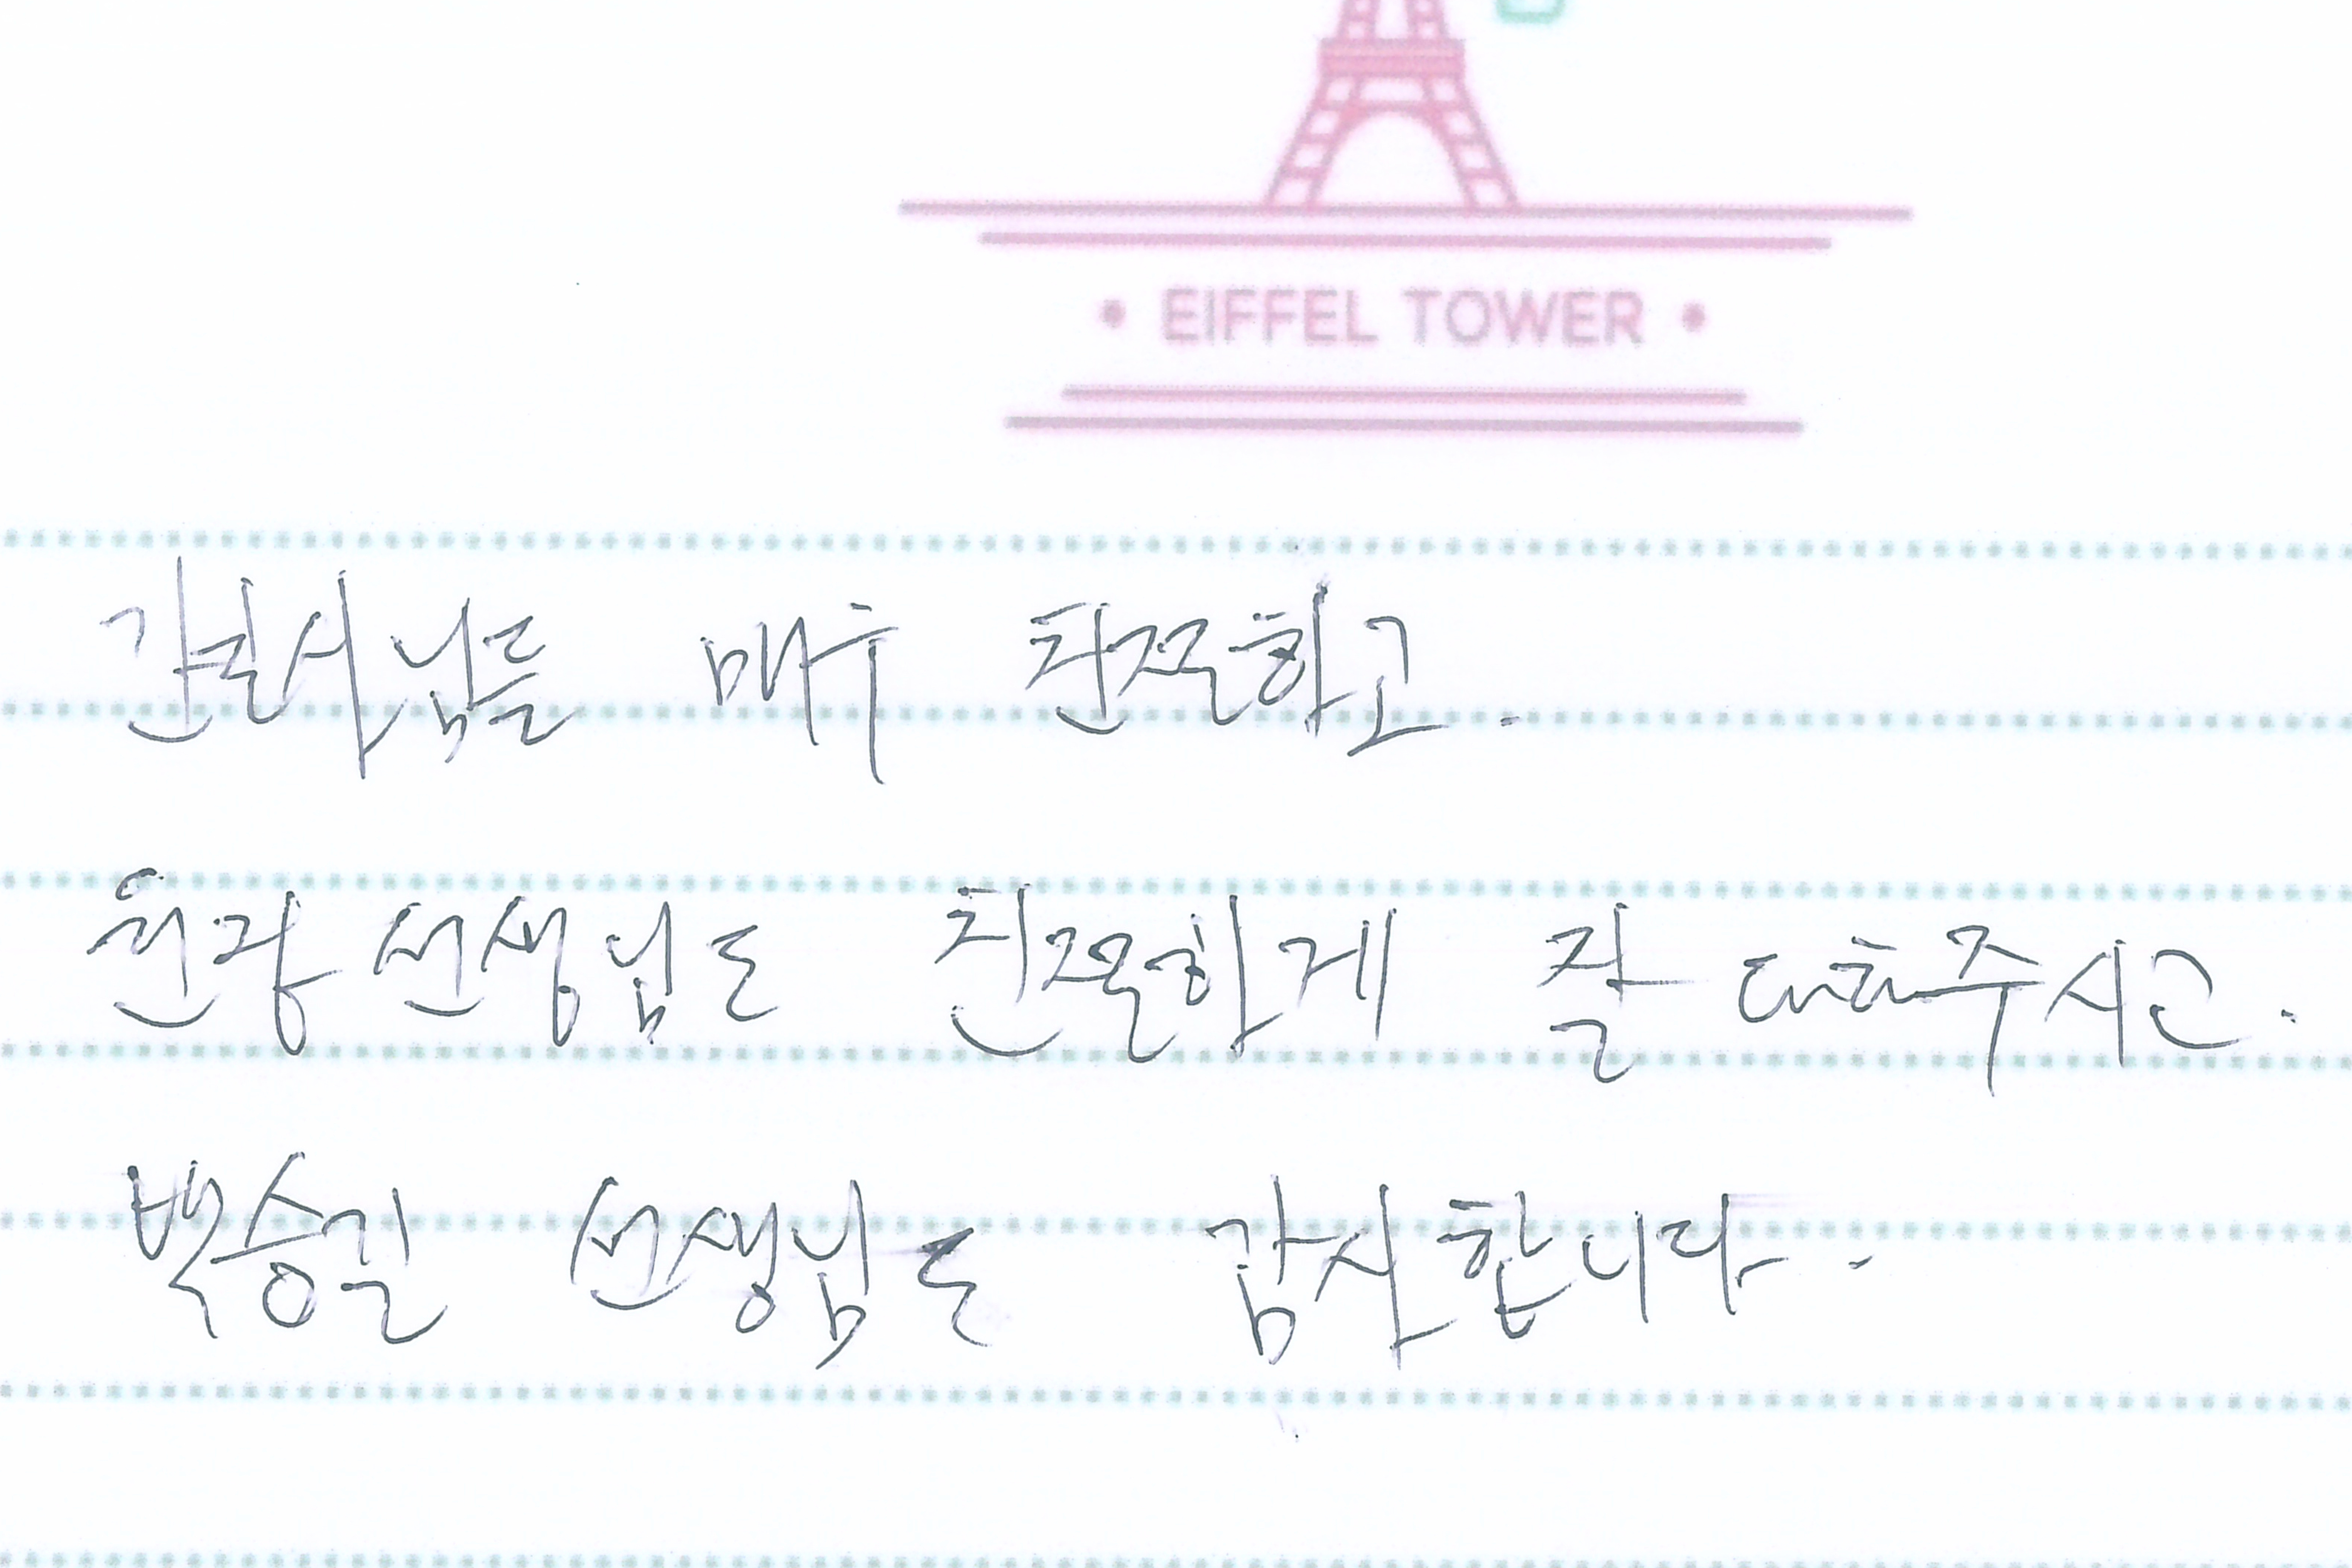 EIFFEL TOWER
간호사님들 매우 친절하고.
원장 선생님도 친절하게 잘 대해주시고.
백승일 선생님도 감사합니다.